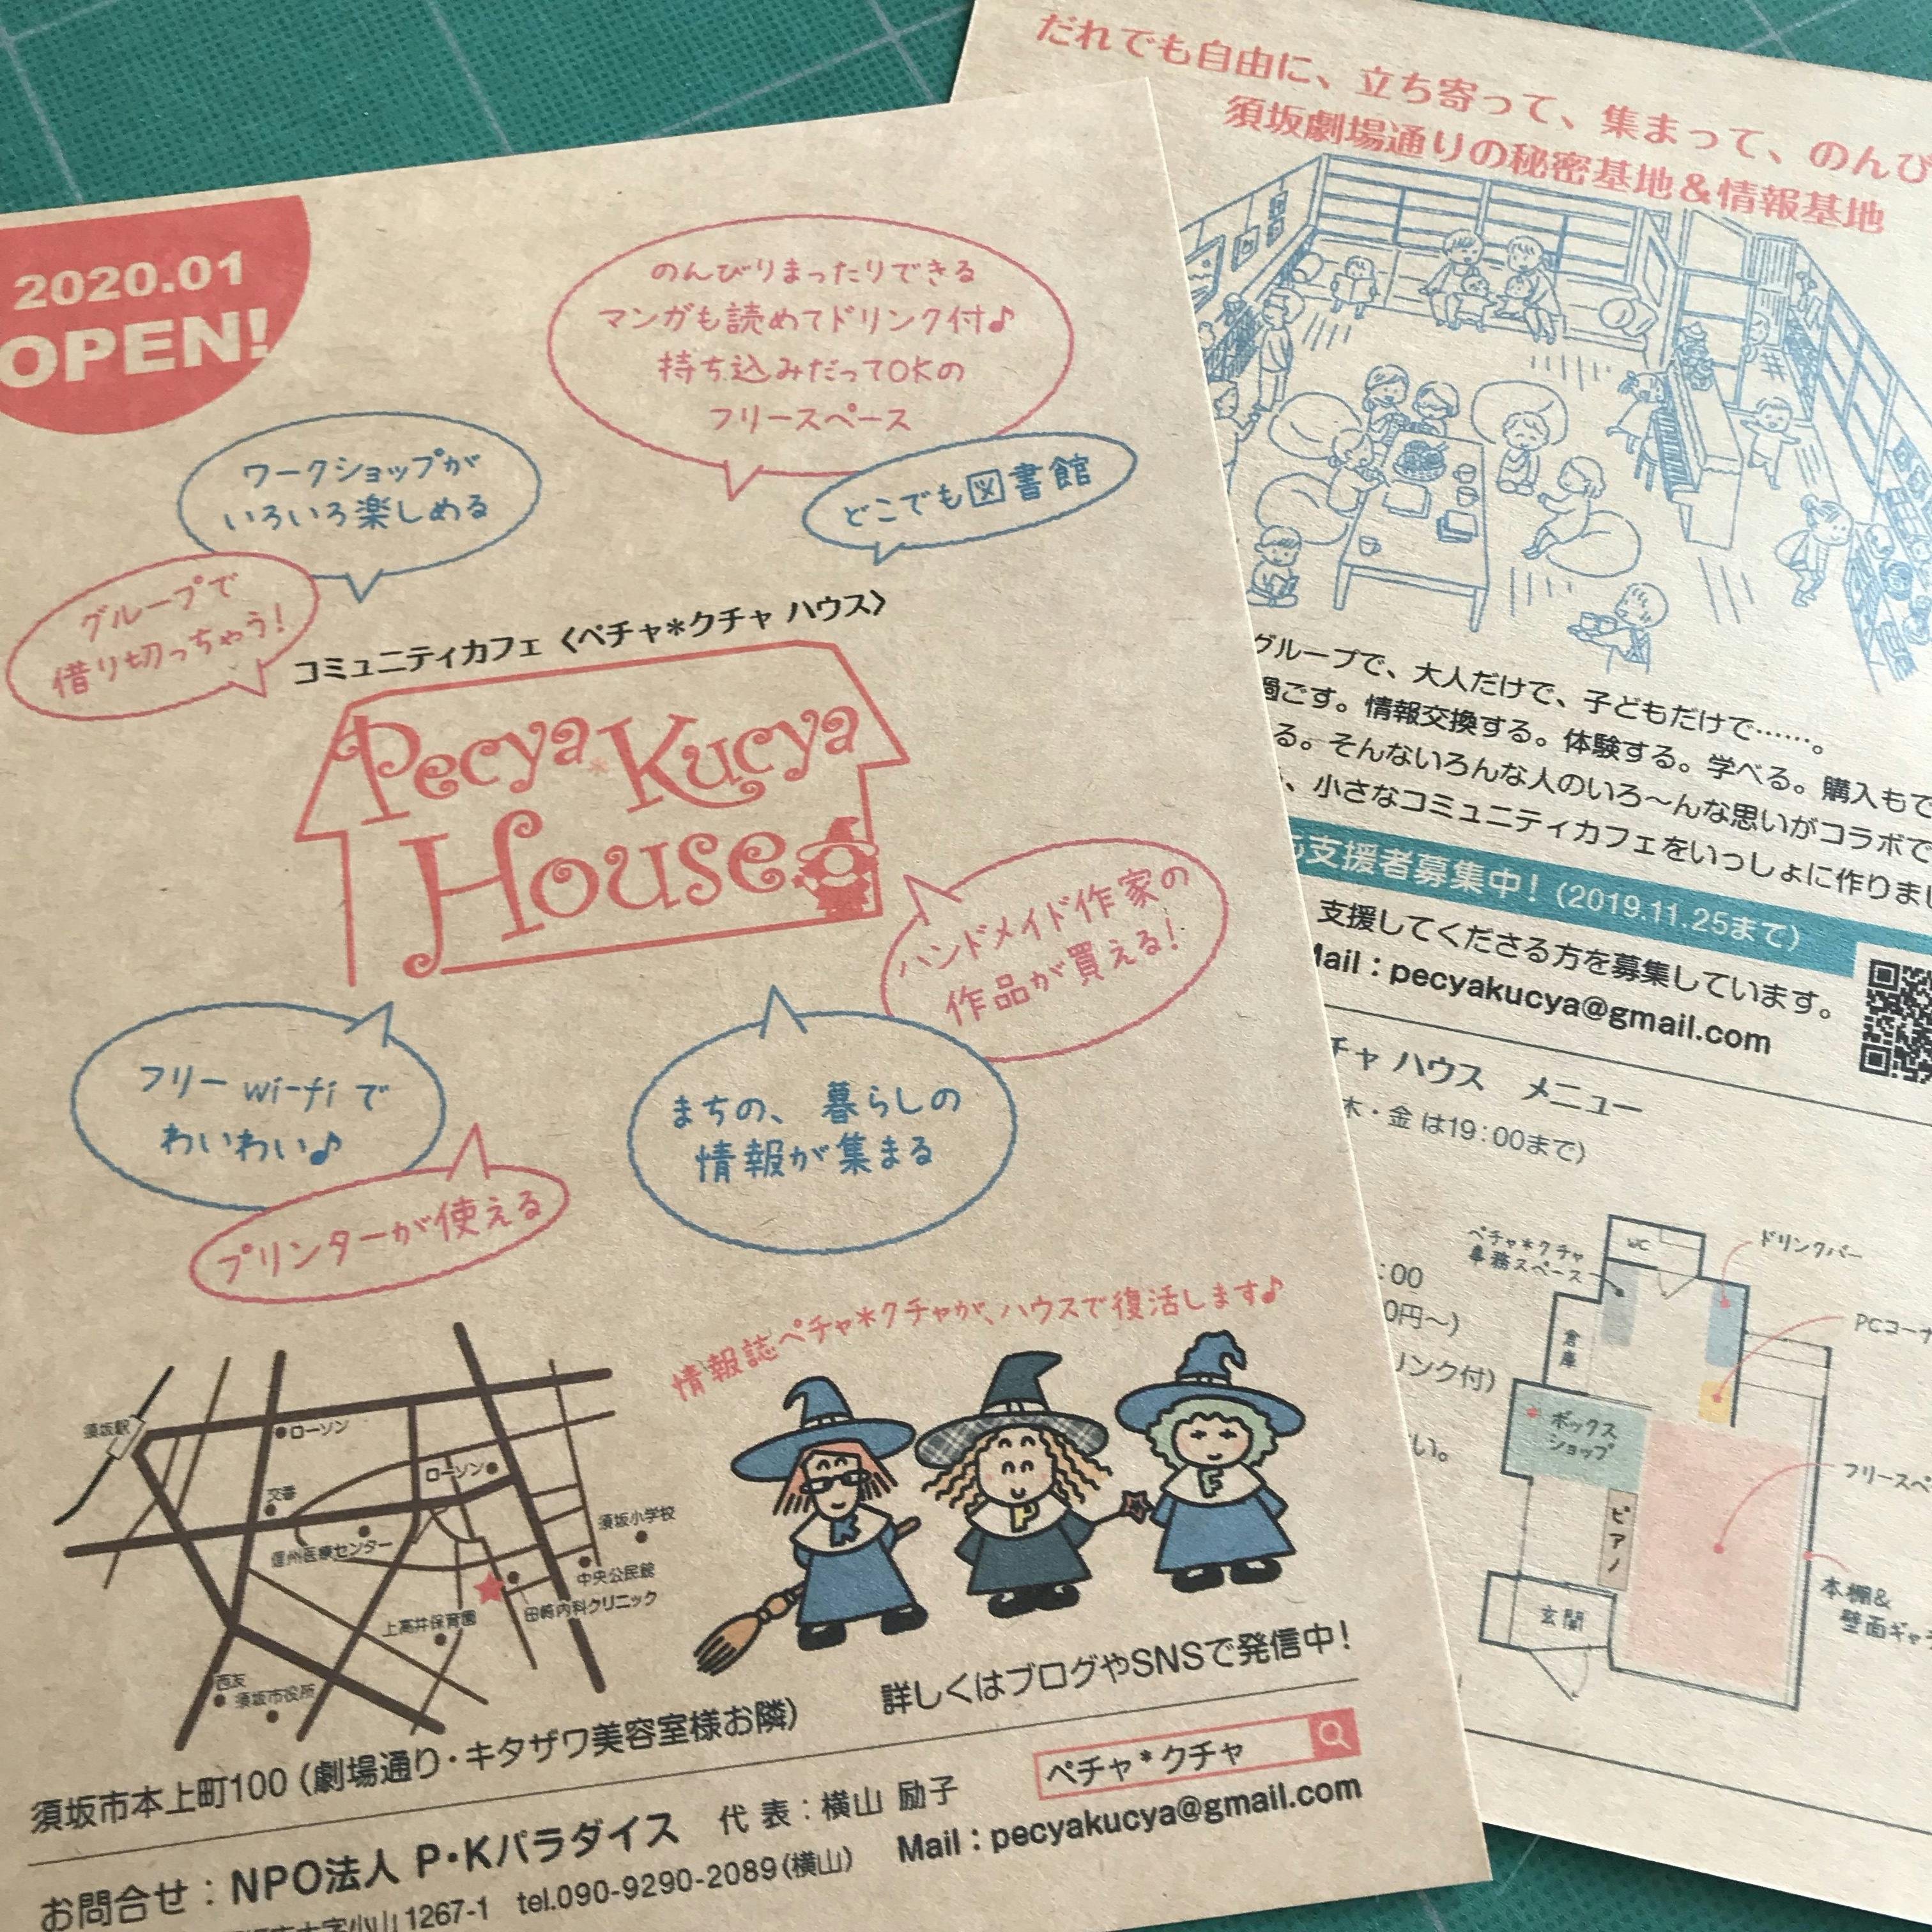 2020.01
OPEN!
のんびりまったりできる
マンガも読めてドリンク付♪
持ち込みだってOKの
フリースペース
ワークショップが
いろいろ楽しめる
どこでも図書館
グループで
借り切っちゃう!
コミュニティカフェ〈ペチャ*クチャ ハウス〉
Pecya*Kucya
House
ハンドメイド作家の
作品が買える!
フリー wi-fi で
わいわい♪
まちの、暮らしの
情報が集まる
プリンターが使える
情報誌ペチャ*クチャが、ハウスで復活します♪
須坂駅
ローソン
ローソン
交番
信州医療センター
須坂小学校
中央公民館
田崎内科クリニック
上高井保育園
西友
須坂市役所
K
P
F
詳しくはブログやSNSで発信中!
須坂市本上町100（劇場通り・キタザワ美容室様お隣）
ペチャ*クチャ
お問合せ：NPO法人 P・Kパラダイス 代表：横山 励子
Mail：pecyakucya@gmail.com
小山1267-1 tel.090-9290-2089（横山）
だれでも自由に、立ち寄って、集まって、のんび
須坂劇場通りの秘密基地＆情報基地
グループで、大人だけで、子どもだけで……。
過ごす。情報交換する。体験する。学べる。購入もで
る。そんないろんな人のいろ〜んな思いがコラボで
、小さなコミュニティカフェをいっしょに作りまし
支援者募集中!（2019.11.25まで）
支援してくださる方を募集しています。
Mail：pecyakucya@gmail.com
チャ ハウス メニュー
木・金 は19：00まで）
：00
0円〜）
リンク付）
い。
WC
ペチャ*クチャ
事務スペース
ドリンクバー
倉庫
PCコーナ
ボックス
ショップ
フリースペ
ピアノ
玄関
本棚&
壁面ギャラ